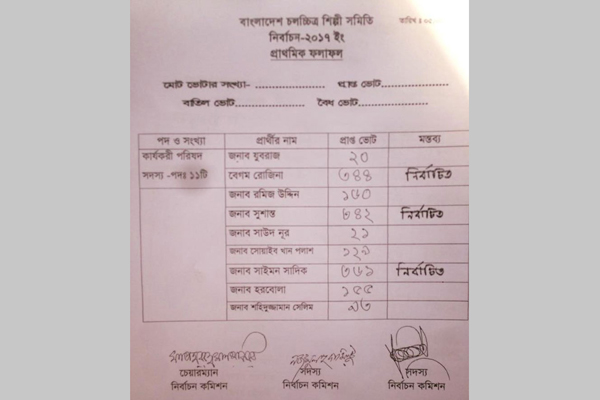 বাংলাদেশ চলচ্চিত্র শিল্পী সমিতি
তারিখ ঃ ০৫
নির্বাচন-২০১৭ ইং
প্রাথমিক ফলাফল
মোট ভোটার সংখ্যা- .................... প্রাপ্ত ভোট....................
বাতিল ভোট.................... বৈধ ভোট....................
পদ ও সংখ্যা প্রার্থীর নাম প্রাপ্ত ভোট মন্তব্য
কার্যকরী পরিষদ জনাব যুবরাজ ২০
সদস্য -পদঃ ১১টি বেগম রোজিনা ৩৪৪ নির্বাচিত
জনাব রমিজ উদ্দিন ১৫০
জনাব সুশান্ত ৩৪২ নির্বাচিত
জনাব সাউদ নূর ২১
জনাব সোয়াইব খান পলাশ ১২৯
জনাব সাইমন সাদিক ৩৬১ নির্বাচিত
জনাব হরবোলা ১৫৫
জনাব শহিদুজ্জামান সেলিম ৯৩
চেয়ারম্যান সদস্য সদস্য
নির্বাচন কমিশন নির্বাচন কমিশন নির্বাচন কমিশন